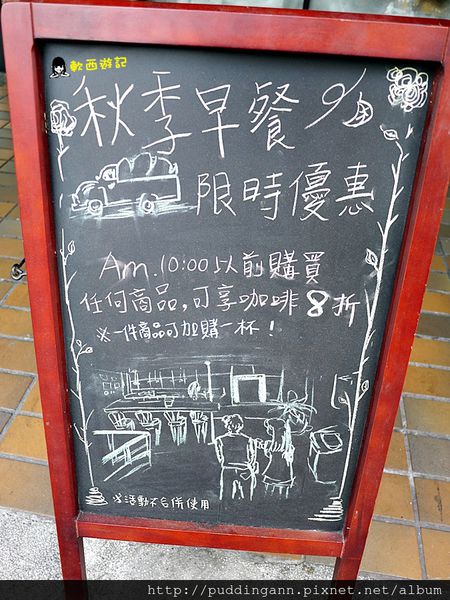 軟西遊記
秋季早餐 9/
限時優惠
Am.10:00以前購買
任何商品,可享咖啡8折
※一件商品可加購一杯!
活動不合併使用
http://puddingann.pixnet.net/album